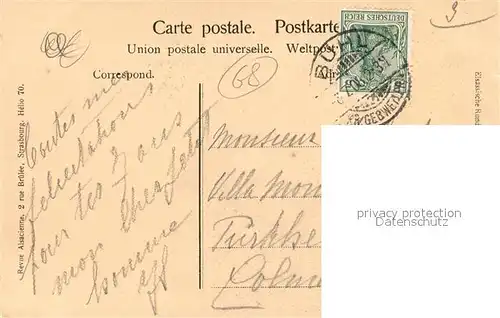 Carte postale. Postkarte
Union postale universelle. Weltpost
Correspond.
68
DEUTSCHES REICH
BÜHL
Revue Alsacienne, 2 rue Brûlée, Strasbourg. Hélio 70.
Toutes mes
félicitations
pour tes 7 ans
mon cher petit
homme
Monsieur
Villa Mon
Türkhe
Colma
privacy protection
watermark